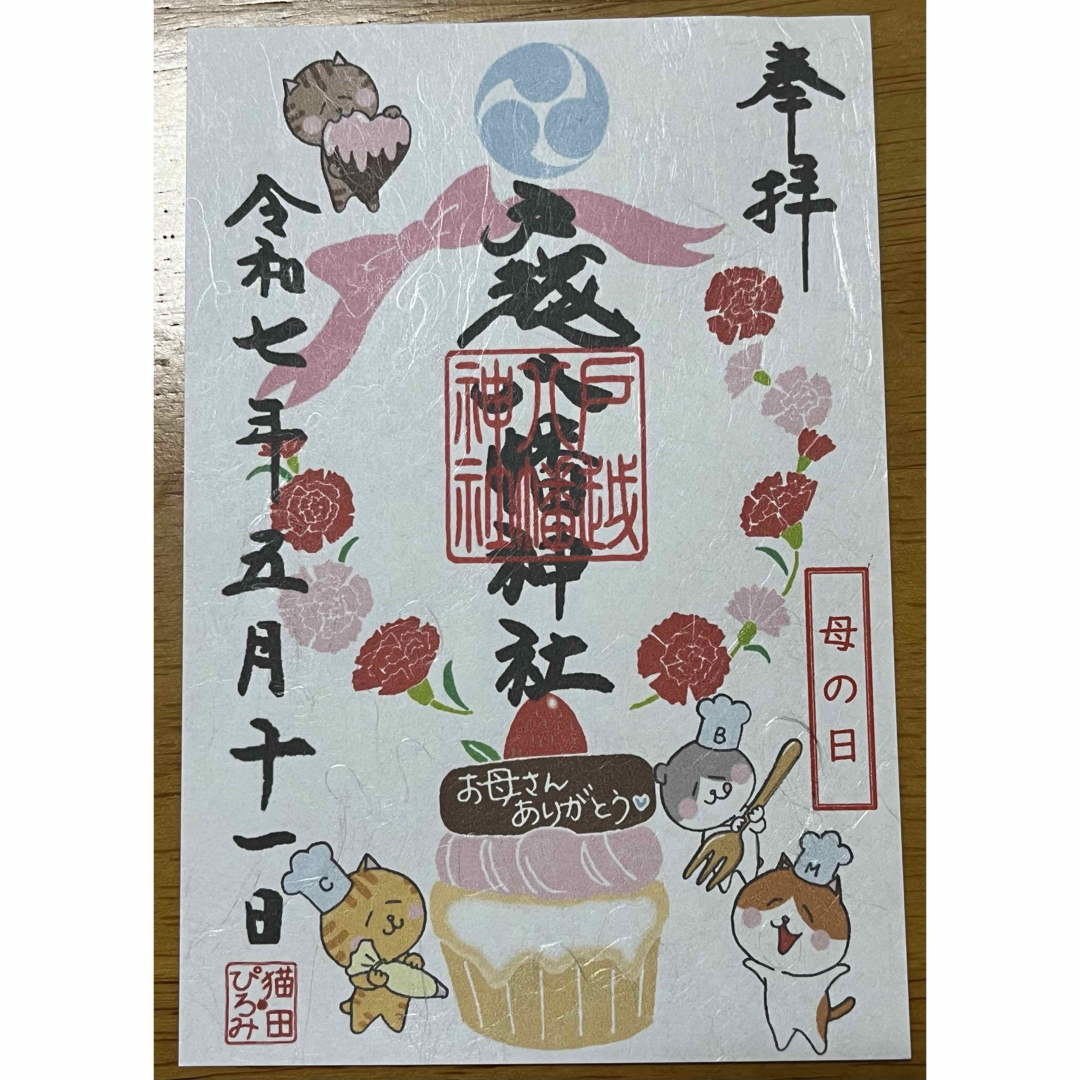 奉拝
戸越八幡神社
戸越
八幡
神社
母の日
令和七年五月十一日
お母さん
ありがとう
B
M
C
猫田
ぴろみ